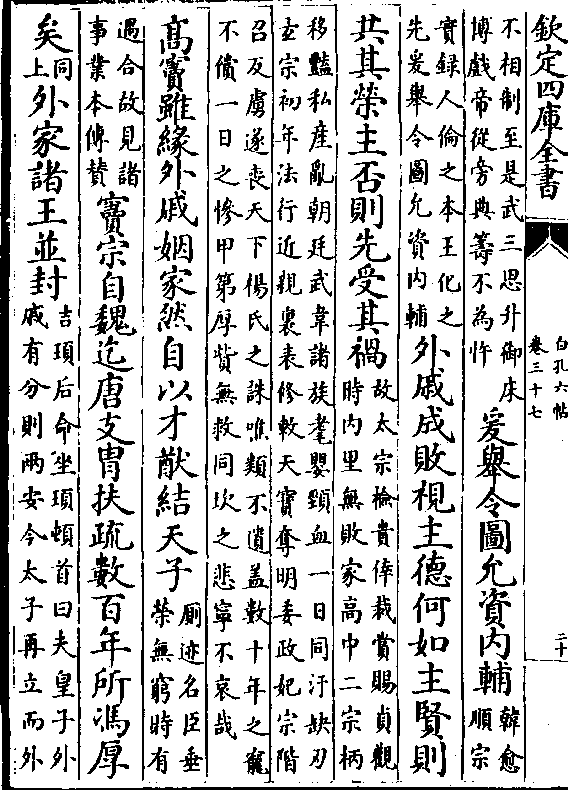 欽定四庫全書
白孔六帖
卷三十七
二十
不相制至是武三思升御床
博戲帝從旁典籌不為忤
爰舉令圖允資内輔
韓愈
順宗
實録人倫之本王化之
先爰舉令圖允資内輔
外戚成敗視主德何如主賢則
共其榮主否則先受其禍
故太宗檢貴倖裁賞賜貞觀
時内里無敗家高中二宗柄
移豔私産亂朝廷武韋諸族耄嬰頸血一日同汙缺刃
玄宗初年法行近親裏表修敕天寶奪明委政妃宗階
召反虜遂喪天下楊氏之誅噍類不遺蓋數十年之寵
不償一日之慘甲第厚貲無救同坎之悲寧不哀哉
髙竇雖緣外戚姻家然自以才猷結天子
厠迹名臣垂
榮無窮時有
遇合故見諸
事業本傳贊
竇宗自魏迄唐支胄扶疏數百年所馮厚
矣
同
上
外家諸王並封
吉頊后命坐頊頓首曰夫皇子外
戚有分則兩安今太子再立而外